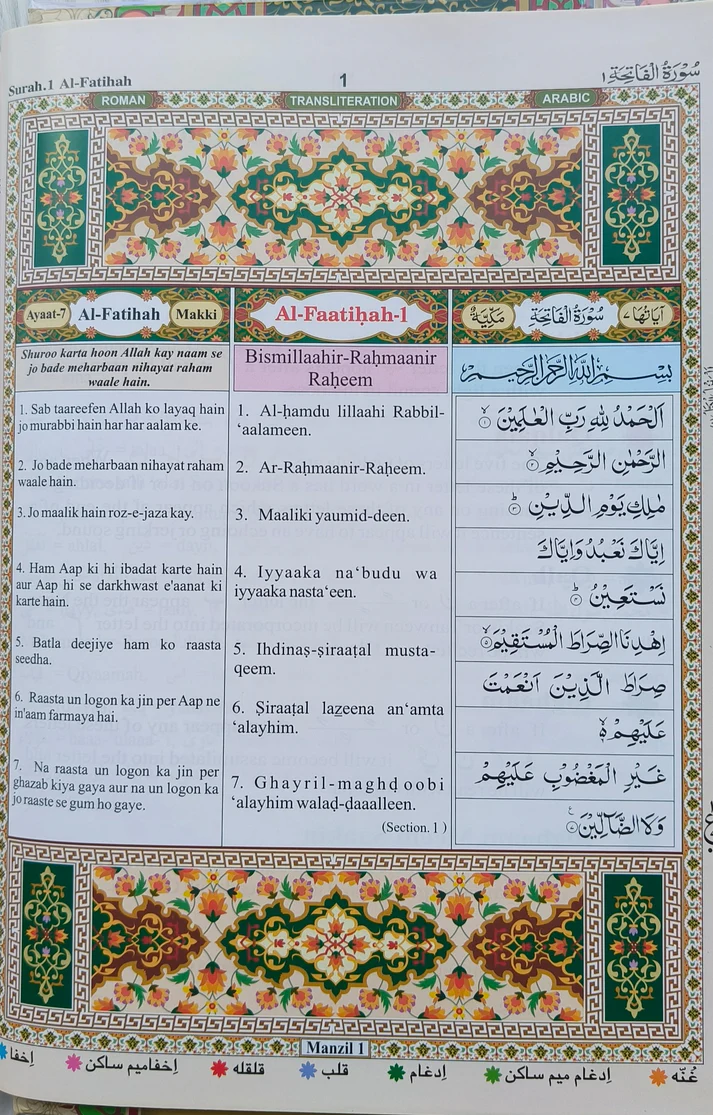 Surah.1 Al-Fatihah
1
سُوْرَةُ الْفَاتِحَةِ ١
ROMAN
TRANSLITERATION
ARABIC
Ayaat-7
Al-Fatihah
Makki
Shuroo karta hoon Allah kay naam se
jo bade meharbaan nihayat raham
waale hain.
1. Sab taareefen Allah ko layaq hain
jo murabbi hain har har aalam ke.
2. Jo bade meharbaan nihayat raham
waale hain.
3. Jo maalik hain roz-e-jaza kay.
4. Ham Aap ki hi ibadat karte hain
aur Aap hi se darkhwast e'aanat ki
karte hain.
5. Batla deejiye ham ko raasta
seedha.
6. Raasta un logon ka jin per Aap ne
in'aam farmaya hai.
7. Na raasta un logon ka jin per
ghazab kiya gaya aur na un logon ka
jo raaste se gum ho gaye.
Al-Faatiḥah-1
Bismillaahir-Raḥmaanir
Raḥeem
1. Al-ḥamdu lillaahi Rabbil-
‘aalameen.
2. Ar-Raḥmaanir-Raḥeem.
3. Maaliki yaumid-deen.
4. Iyyaaka na‘budu wa
iyyaaka nasta‘een.
5. Ihdinaṣ-ṣiraaṭal musta-
qeem.
6. Ṣiraaṭal lazeena an‘amta
‘alayhim.
7. Ghayril-maghḍoobi
‘alayhim walaḍ-ḍaaalleen.
(Section. 1 )
اٰيَاتُهَا ٧
سُوْرَةُ الْفَاتِحَةِ
مَكِّيَّةٌ
بِسْمِ اللّٰهِ الرَّحْمٰنِ الرَّحِيْمِ
اَلْحَمْدُ لِلّٰهِ رَبِّ الْعٰلَمِيْنَ ۙ﴿١﴾
الرَّحْمٰنِ الرَّحِيْمِ ۙ﴿٢﴾
مٰلِكِ يَوْمِ الدِّيْنِ ؕ﴿٣﴾
اِيَّاكَ نَعْبُدُ وَاِيَّاكَ
نَسْتَعِيْنُ ؕ﴿٤﴾
اِهْدِنَا الصِّرَاطَ الْمُسْتَقِيْمَ ۙ﴿٥﴾
صِرَاطَ الَّذِيْنَ اَنْعَمْتَ
عَلَيْهِمْ ۙ﴿٦﴾
غَيْرِ الْمَغْضُوْبِ عَلَيْهِمْ
وَلَا الضَّآلِّيْنَ ﴿٧﴾
Manzil 1
غُنّه
اِدغام میم ساکن
اِدغام
قلب
قلقله
اِخفامیم ساکن
اِخفا